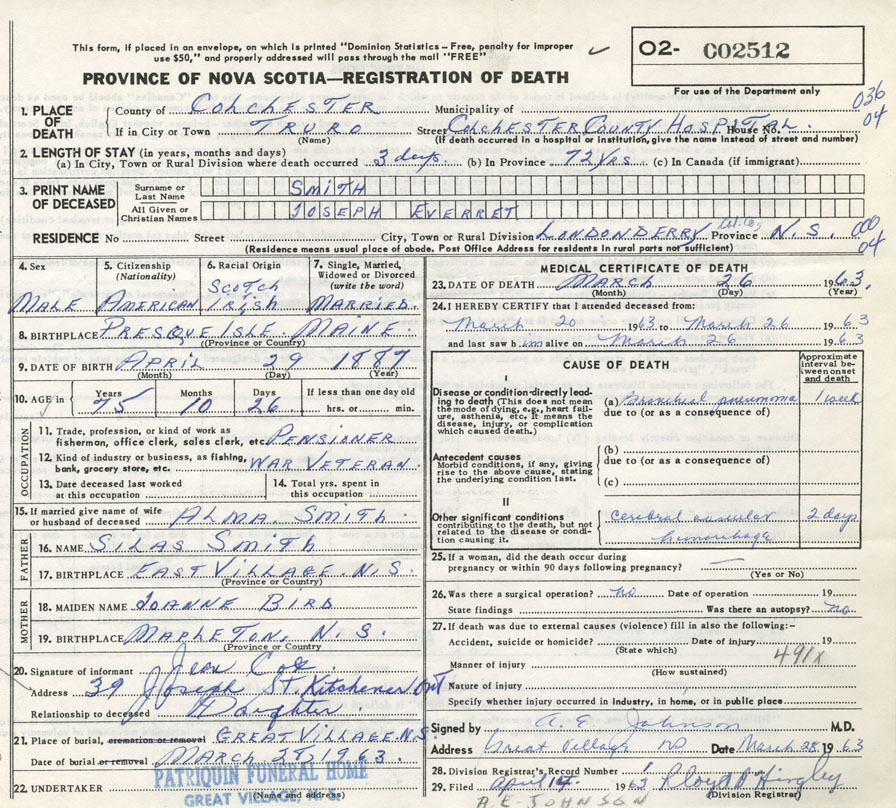 This form, if placed in an envelope, on which is printed "Dominion Statistics - Free, penalty for improper
use $50," and properly addressed will pass through the mail "FREE"
O2- C02512
PROVINCE OF NOVA SCOTIA—REGISTRATION OF DEATH
For use of the Department only
036
04
1. PLACE OF DEATH County of COLCHESTER Municipality of
If in City or Town TRURO Street COLCHESTER COUNTY HOSPITAL House No.
(Name) (If death occurred in a hospital or institution, give the name instead of street and number)
2. LENGTH OF STAY (in years, months and days)
(a) In City, Town or Rural Division where death occurred 3 days (b) In Province 72 Yrs (c) In Canada (if immigrant)
3. PRINT NAME OF DECEASED
Surname or Last Name SMITH
All Given or Christian Names JOSEPH EVERRET
RESIDENCE No Street City, Town or Rural Division LONDONDERRY Province N.S. 000
04
(Residence means usual place of abode. Post Office Address for residents in rural parts not sufficient)
4. Sex MALE
5. Citizenship (Nationality) AMERICAN
6. Racial Origin SCOTCH IRISH
7. Single, Married, Widowed or Divorced (write the word) MARRIED.
8. BIRTHPLACE PRESQUE ISLE MAINE
(Province or Country)
9. DATE OF BIRTH APRIL 29 1887
(Month) (Day) (Year)
10. AGE in Years 75 Months 10 Days 26 If less than one day old hrs. or min.
OCCUPATION
11. Trade, profession, or kind of work as fisherman, office clerk, sales clerk, etc. PENSIONER
12. Kind of industry or business, as fishing, bank, grocery store, etc. WAR VETERAN.
13. Date deceased last worked at this occupation
14. Total yrs. spent in this occupation
15. If married give name of wife or husband of deceased ALMA SMITH
FATHER
16. NAME SILAS SMITH
17. BIRTHPLACE EAST VILLAGE N.S.
(Province or Country)
MOTHER
18. MAIDEN NAME JOANNE BIRD
19. BIRTHPLACE MAPLETON, N.S.
(Province or Country)
20. Signature of informant Jean Cox
Address 39 Joseph St. Kitchener Ont
Relationship to deceased Daughter
21. Place of burial, cremation or removal GREAT VILLAGE N.S.
Date of burial or removal MARCH 28, 1963
22. UNDERTAKER
(Name and address)
PATRIQUIN FUNERAL HOME
GREAT VILLAGE, N.S.
MEDICAL CERTIFICATE OF DEATH
23. DATE OF DEATH March 26 1963.
(Month) (Day) (Year)
24. I HEREBY CERTIFY that I attended deceased from:
March 20 1963 to March 26 19 63
and last saw him alive on March 26 19 63
CAUSE OF DEATH
Approximate interval between onset and death
I
Disease or condition directly leading to death (This does not mean the mode of dying, e.g., heart failure, asthenia, etc. It means the disease, injury, or complication which caused death.)
(a) Bronchial pneumonia 1 week
due to (or as a consequence of)
Antecedent causes
Morbid conditions, if any, giving rise to the above cause, stating the underlying condition last.
(b)
due to (or as a consequence of)
(c)
II
Other significant conditions contributing to the death, but not related to the disease or condition causing it.
Cerebral vascular 2 days
hemorrhage
25. If a woman, did the death occur during pregnancy or within 90 days following pregnancy?
(Yes or No)
26. Was there a surgical operation? no Date of operation 19
State findings Was there an autopsy? no
27. If death was due to external causes (violence) fill in also the following:-
Accident, suicide or homicide? Date of injury 19
(State which) 491X
Manner of injury
(How sustained)
Nature of injury
Specify whether injury occurred in industry, in home, or in public place
Signed by A. E. Johnson M.D.
Address Great Village NS Date March 28 1963
28. Division Registrar's Record Number 1
29. Filed April 14 1963
(Division Registrar)
A.E. JOHNSON